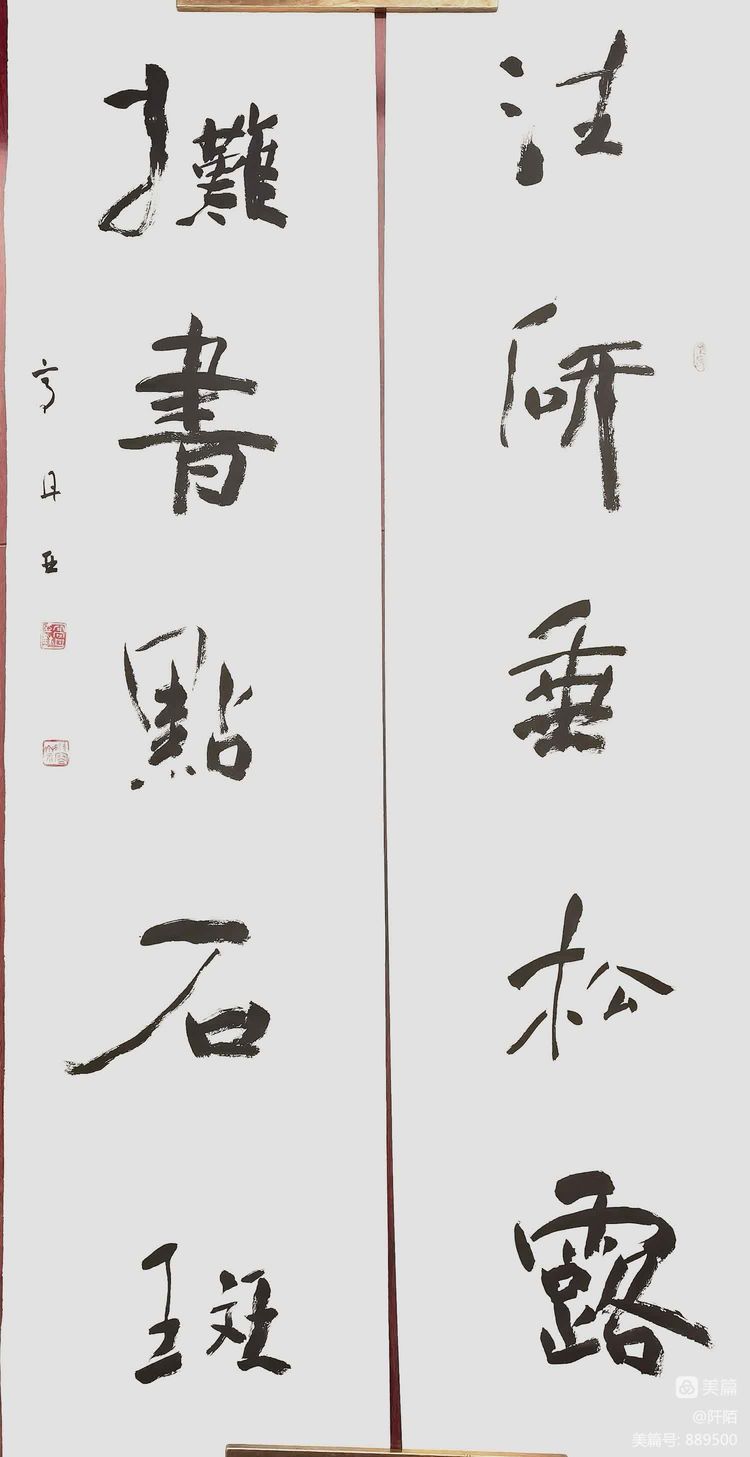 注研垂松露
攤書點石斑
美篇
@阡陌
美篇号: 889500